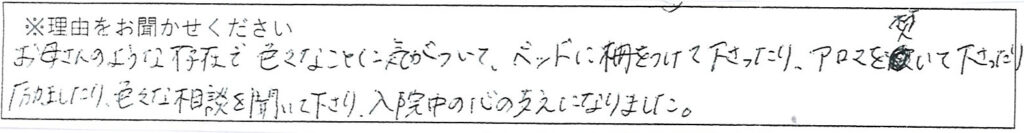 ※理由をお聞かせください
お母さんのような存在で色々なことに気がついて、ベッドに柵をつけて下さったり、アロマを焚いて下さったり
励ましたり、色々な相談を聞いて下さり、入院中の心の支えになりました。